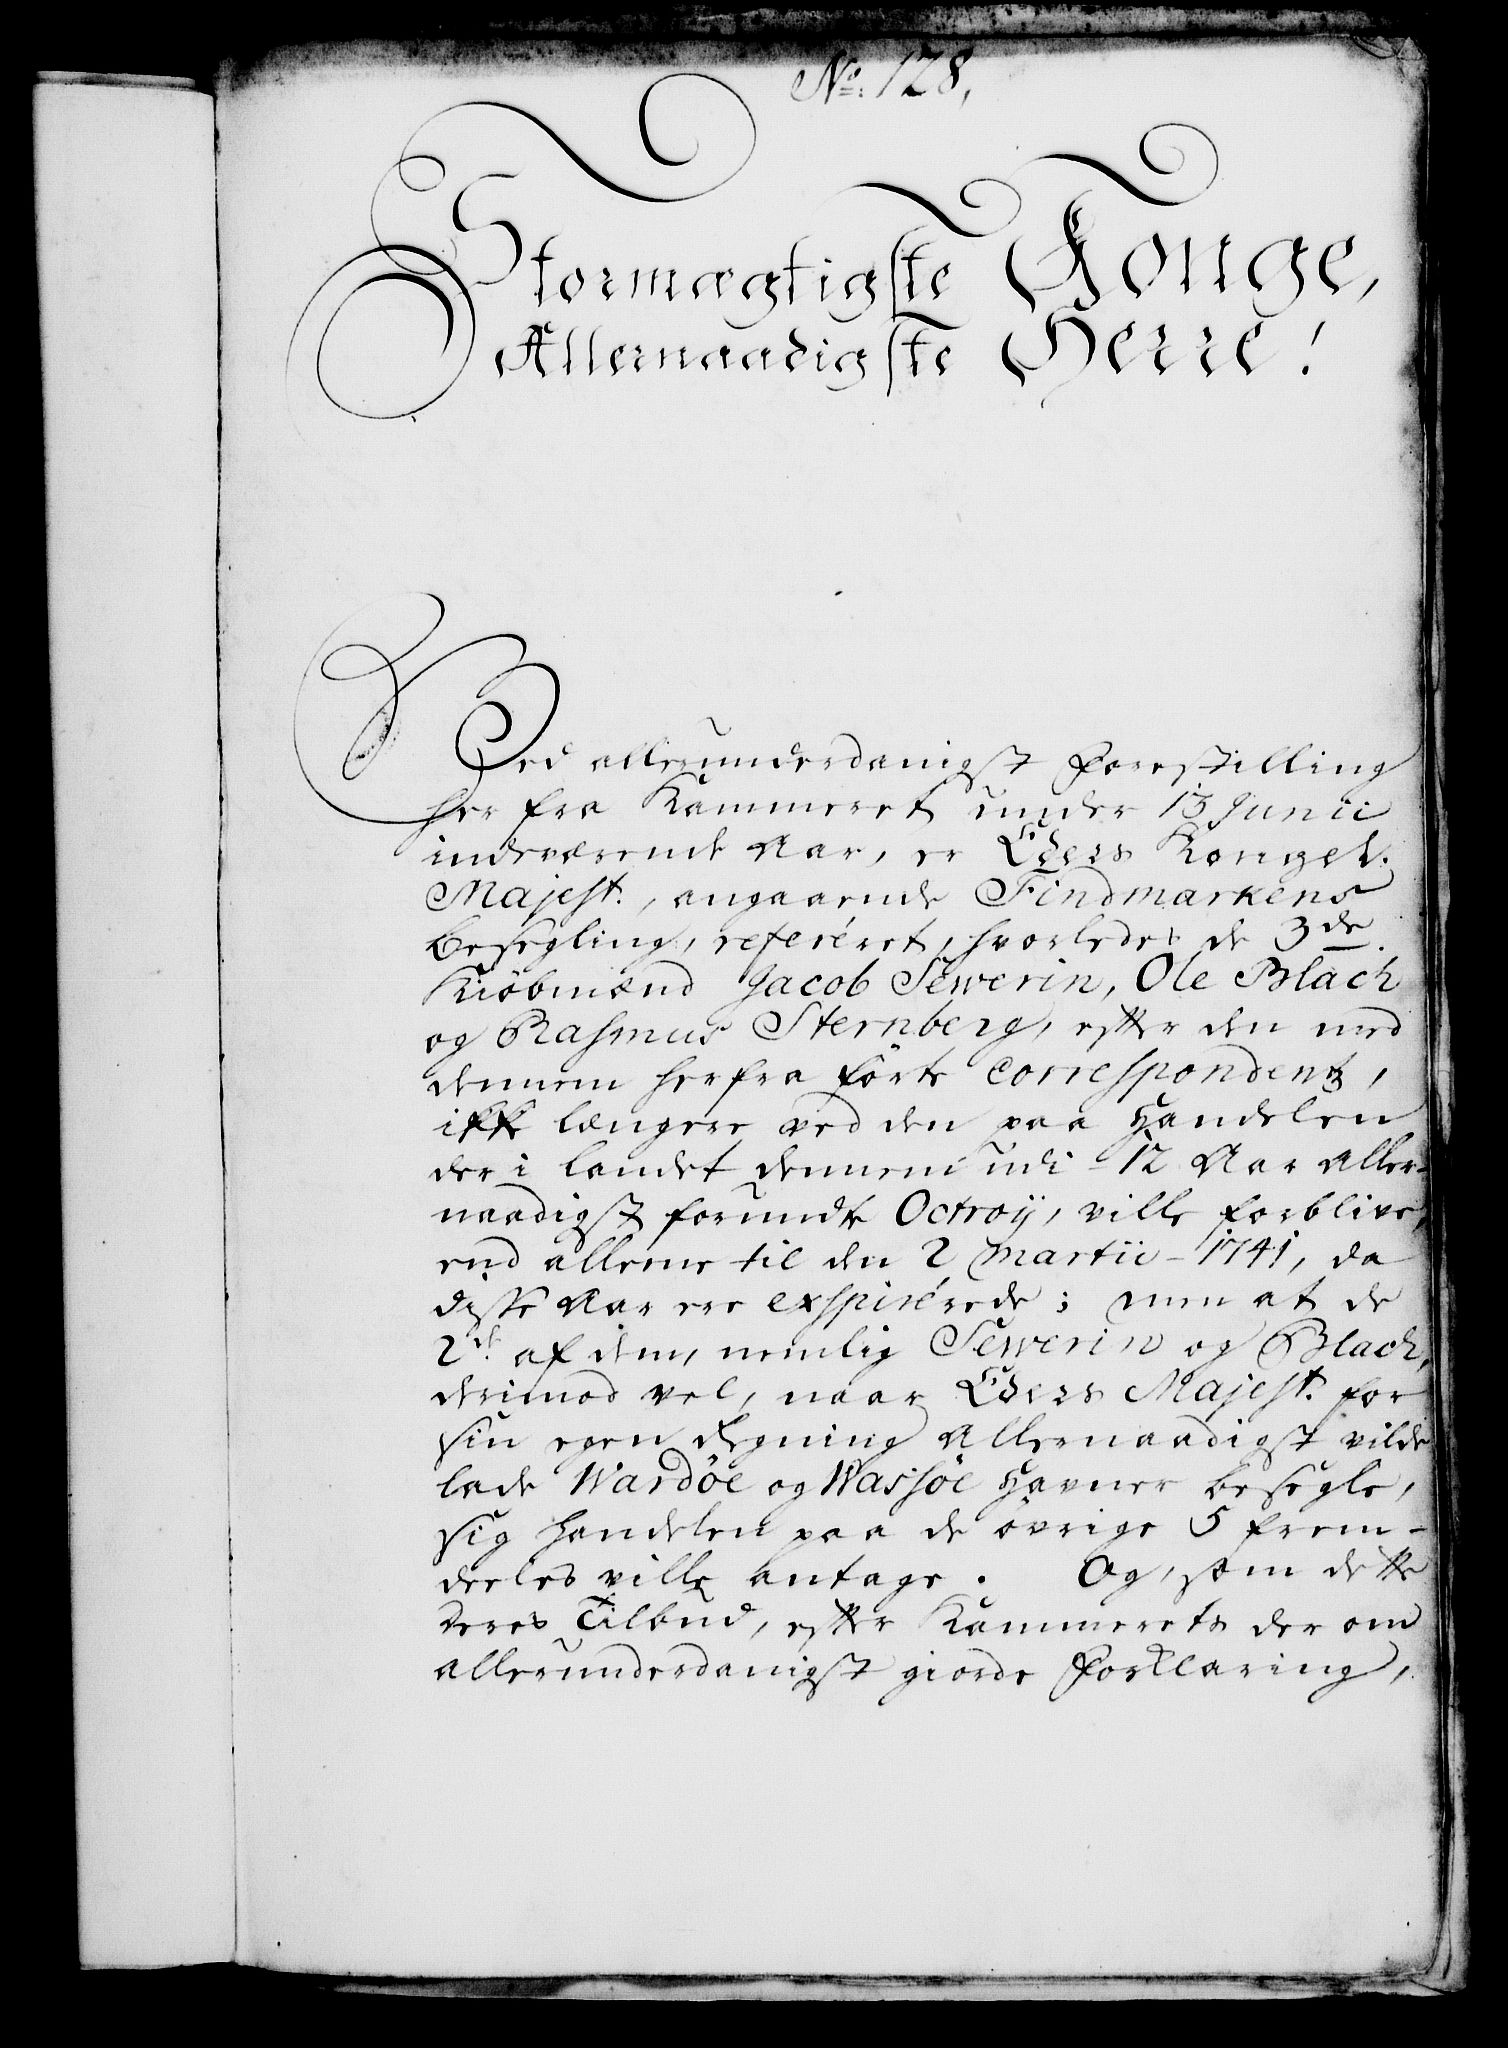 No. 128,
Stormægtigste Konge,
Allernaadigste Herre!
Ved allerunderdanigst Forestilling
her fra Kammeret under 13 Junii
indeværende Aar, er Eders Kongel.
Majest., angaaende Findmarkens
besegling, referéret, hvorledes de 3de
Kiöbmænd Jacob Sewerin, Ole Blach
og Rasmus Sternberg, efter den med
dennem herfra förte correspondentz,
ikke længere ved den paa Handelen
der i landet dennem udi 12 Aar aller-
naadigst forundte Octroÿ, ville forblive,
end alleene til den 2 Martii 1741, da
disse Aar ere exspirérede; men at de
2de af dem, nemlig Sewerin og Blach,
derimod vel, naar Eders Majest. for
sin egen Regning Allernaadigst vilde
lade Wardöe og Wassöe Havner besegle,
sig Handelen paa de övrige 5 frem-
deeles ville antage. Og, som dette
deres Tilbud, efter Kammerets der om
allerunderdanigst giorde Forklaring,